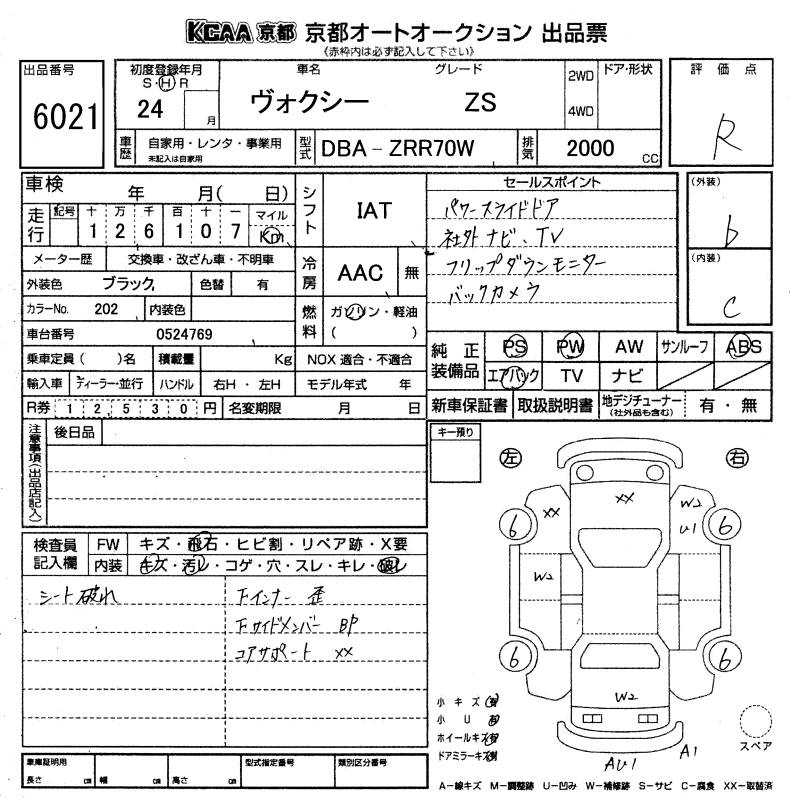 KCAA 京都 京都オートオークション 出品票
《赤枠内は必ず記入して下さい》
出品番号
6021
初度登録年月
S・H・R
24
月
車名
ヴォクシー
グレード
ZS
2WD
4WD
ドア・形状
車歴
自家用・レンタ・事業用
未記入は自家用
型式
DBA－ZRR70W
排気
2000
CC
評価点
R
(外装)
b
(内装)
C
車検
年 月( 日)
走行
記号
十 万 千 百 十 一
1 2 6 1 0 7
マイル
Km
メーター歴
交換車・改ざん車・不明車
外装色
ブラック
色替
有
カラーNo.
202
内装色
車台番号
0524769
乗車定員( )名
積載量
Kg
輸入車
ディーラー・並行
ハンドル
右H・左H
R券
1 2,5 3 0 円
名変期限
月 日
シフト
IAT
冷房
AAC
無
燃料
ガソリン・軽油
( )
NOX 適合・不適合
モデル年式 年
セールスポイント
パワースライドドア
社外ナビ、TV
フリップダウンモニター
バックカメラ
純正装備品
PS
PW
AW
サンルーフ
ABS
エアバック
TV
ナビ
新車保証書
取扱説明書
地デジチューナー
(社外品も含む)
有・無
注意事項(出品店記入)
後日品
検査員記入欄
FW
キズ・飛石・ヒビ割・リペア跡・X要
内装
キズ・汚レ・コゲ・穴・スレ・キレ・破レ
シート破れ
Fインナー 歪
FサイドメンバーBP
コアサポート XX
車庫証明用
長さ cm
幅 cm
高さ cm
型式指定番号
類別区分番号
キー預り
左
右
XX
XX
W2
U1
6
6
W2
6
6
W2
AU1
A1
小キズ(有)
小U(有)
ホイールキズ(有)
ドアミラーキズ(有)
スペア
A－線キズ M－調整跡 U－凹み W－補修跡 S－サビ C－腐食 XX－取替済